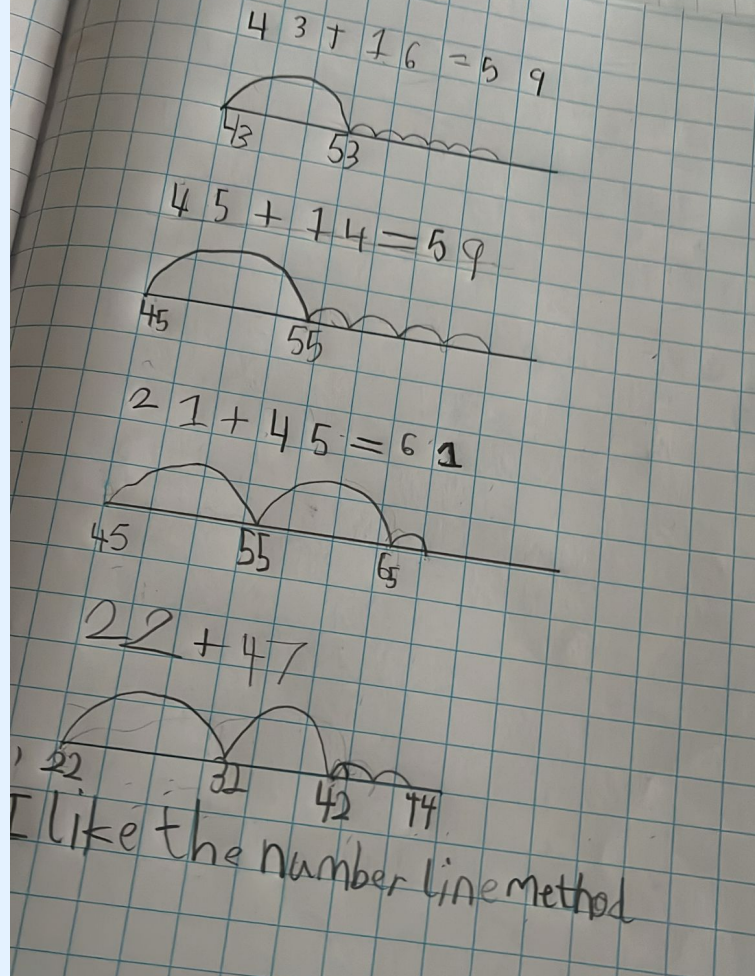 43+16=59
43 53
45+14=59
45 55
21+45=61
45 55 65
22+47
22 32 42 44
I like the number line method